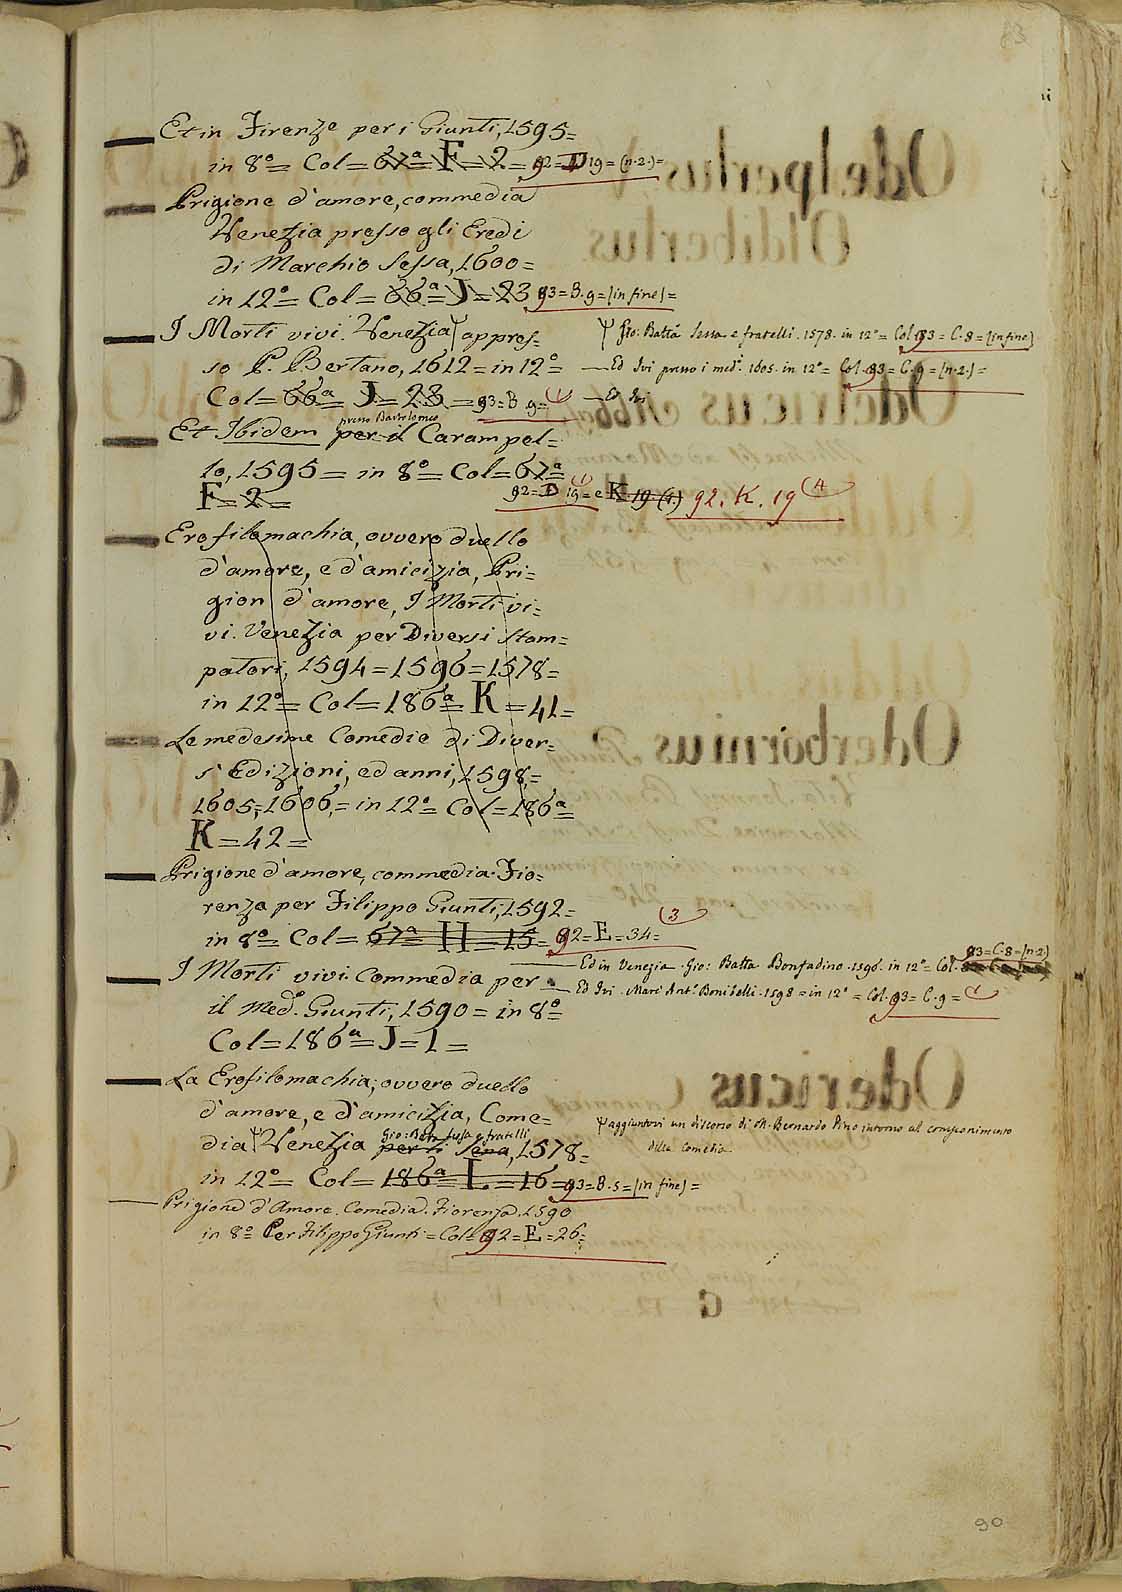 83
Et in Firenze per i Giunti, 1595=
in 8º= Col= 67ª F= 2= 92= D 19= (n. 2.)=
Prigione d'amore, commedia
Venezia presso gli Eredi
di Marchio Sessa, 1600=
in 12º= Col= 66ª= J= 23 93= B. 9= [in fine]=
I Morti vivi. Venezia appres=
Gio: Batta Sessa e fratelli. 1578. in 12º= Col. 93= C. 8= [in fine]
so P. Bertano, 1612= in 12º=
Ed Ivi presso i med.i 1605. in 12º= Col. 93= C. 9= [n. 2.]=
Col= 66ª J= 23= 93= B. 9= (1)
Ed Ivi
presso Bartolomeo
Et Ibidem per il Carampel=
lo, 1595= in 8º= Col= 67ª=
F= 2= 92= D 19= (1) e K 19 (4) 92. K. 19 (4
Erofilomachia, ovvero duello
d'amore, e d'amicizia, Pri=
gion d'amore, I Morti vi=
vi. Venezia per Diversi Stam=
patori, 1594= 1596= 1578=
in 12º= Col= 186ª= K= 41=
Le medesime Comedie di Diver=
s'Edizioni, ed anni, 1598,=
1605,= 1606,= in 12º= Col= 186ª=
K= 42=
Prigione d'amore, commedia. Fio=
renza per Filippo Giunti, 1592=
in 8º= Col= 67ª H= 15= 92= E= 34= (3
93= C. 8= [n. 2]
Ed in Venezia. Gio: Batta Bonfadino. 1596. in 12º= Col.
I Morti vivi Commedia per
Ed Ivi. Marc' Ant.º Bonibelli. 1598= in 12º= Col. 93= C. 9= (1
il Med.º Giunti, 1590= in 8º=
Col= 186ª= J= 1=
La Erofilomachia; ovvero duello
d'amore, e d'amicizia, Come=
aggiuntovi un discorso di M. Bernardo Pino intorno al componimento
della Comedia
Gio: Batt. Sessa e fratelli
dia Venezia per li Sessa, 1578=
in 12º= Col= 186ª L= 16= 93= B. 5= [in fine]=
Prigione d'Amore. Comedia. Fiorenza. 1590
in 8º= Per Filippo Giunti= Col= 92= E= 26=
90